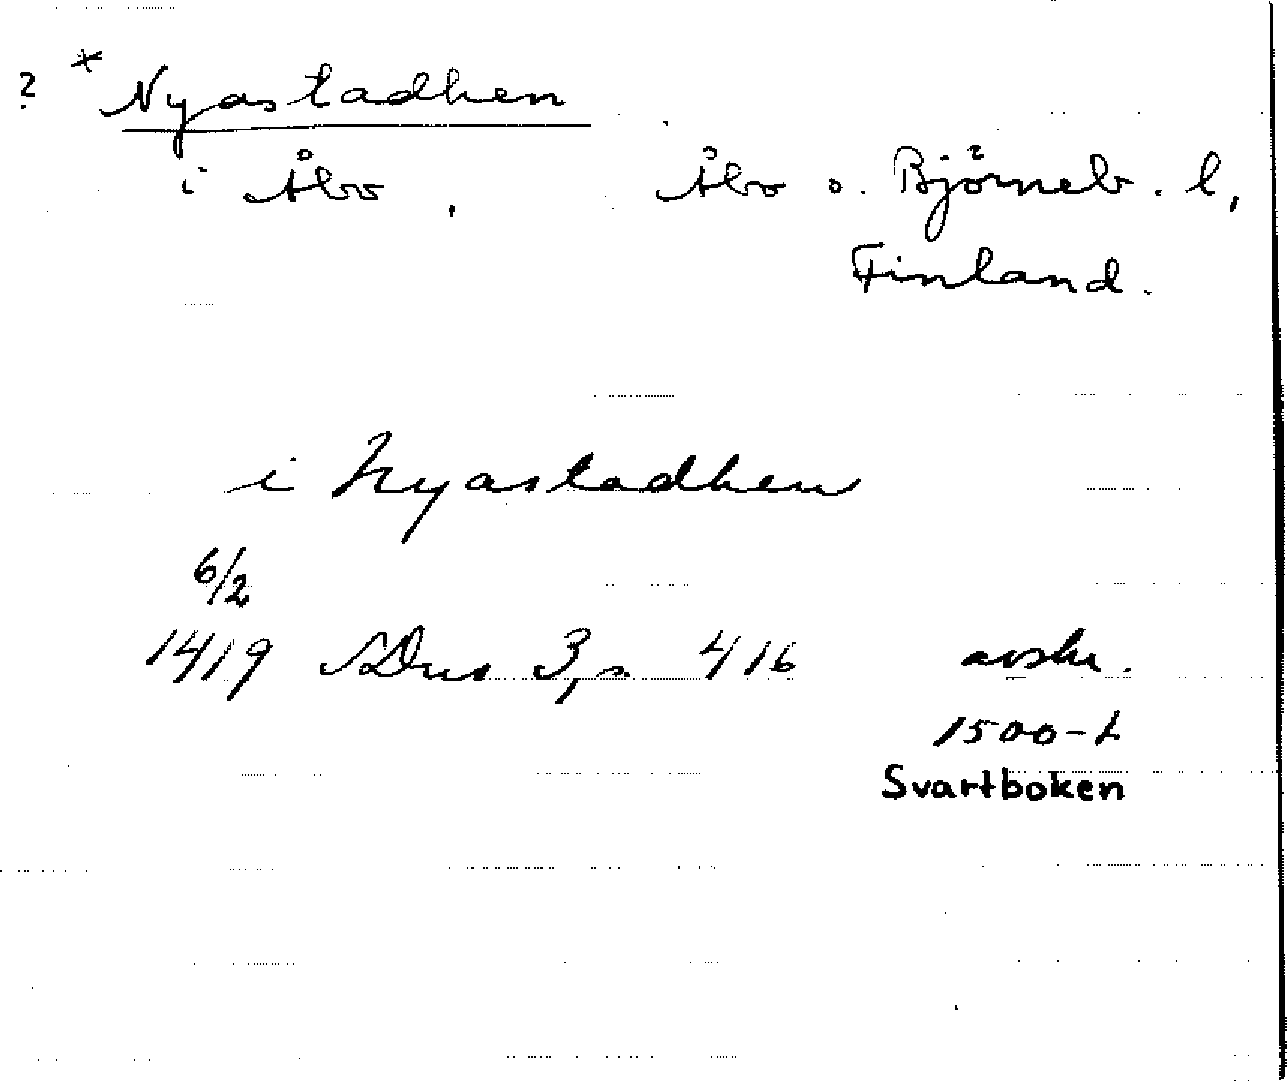 ? * Nyastadhen
i Åbo, Åbo o. Björneb. l,
Finland.
i Nyastadhen
6/2
1419 SDns 3, s. 416 avskr.
1500-t
Svartboken